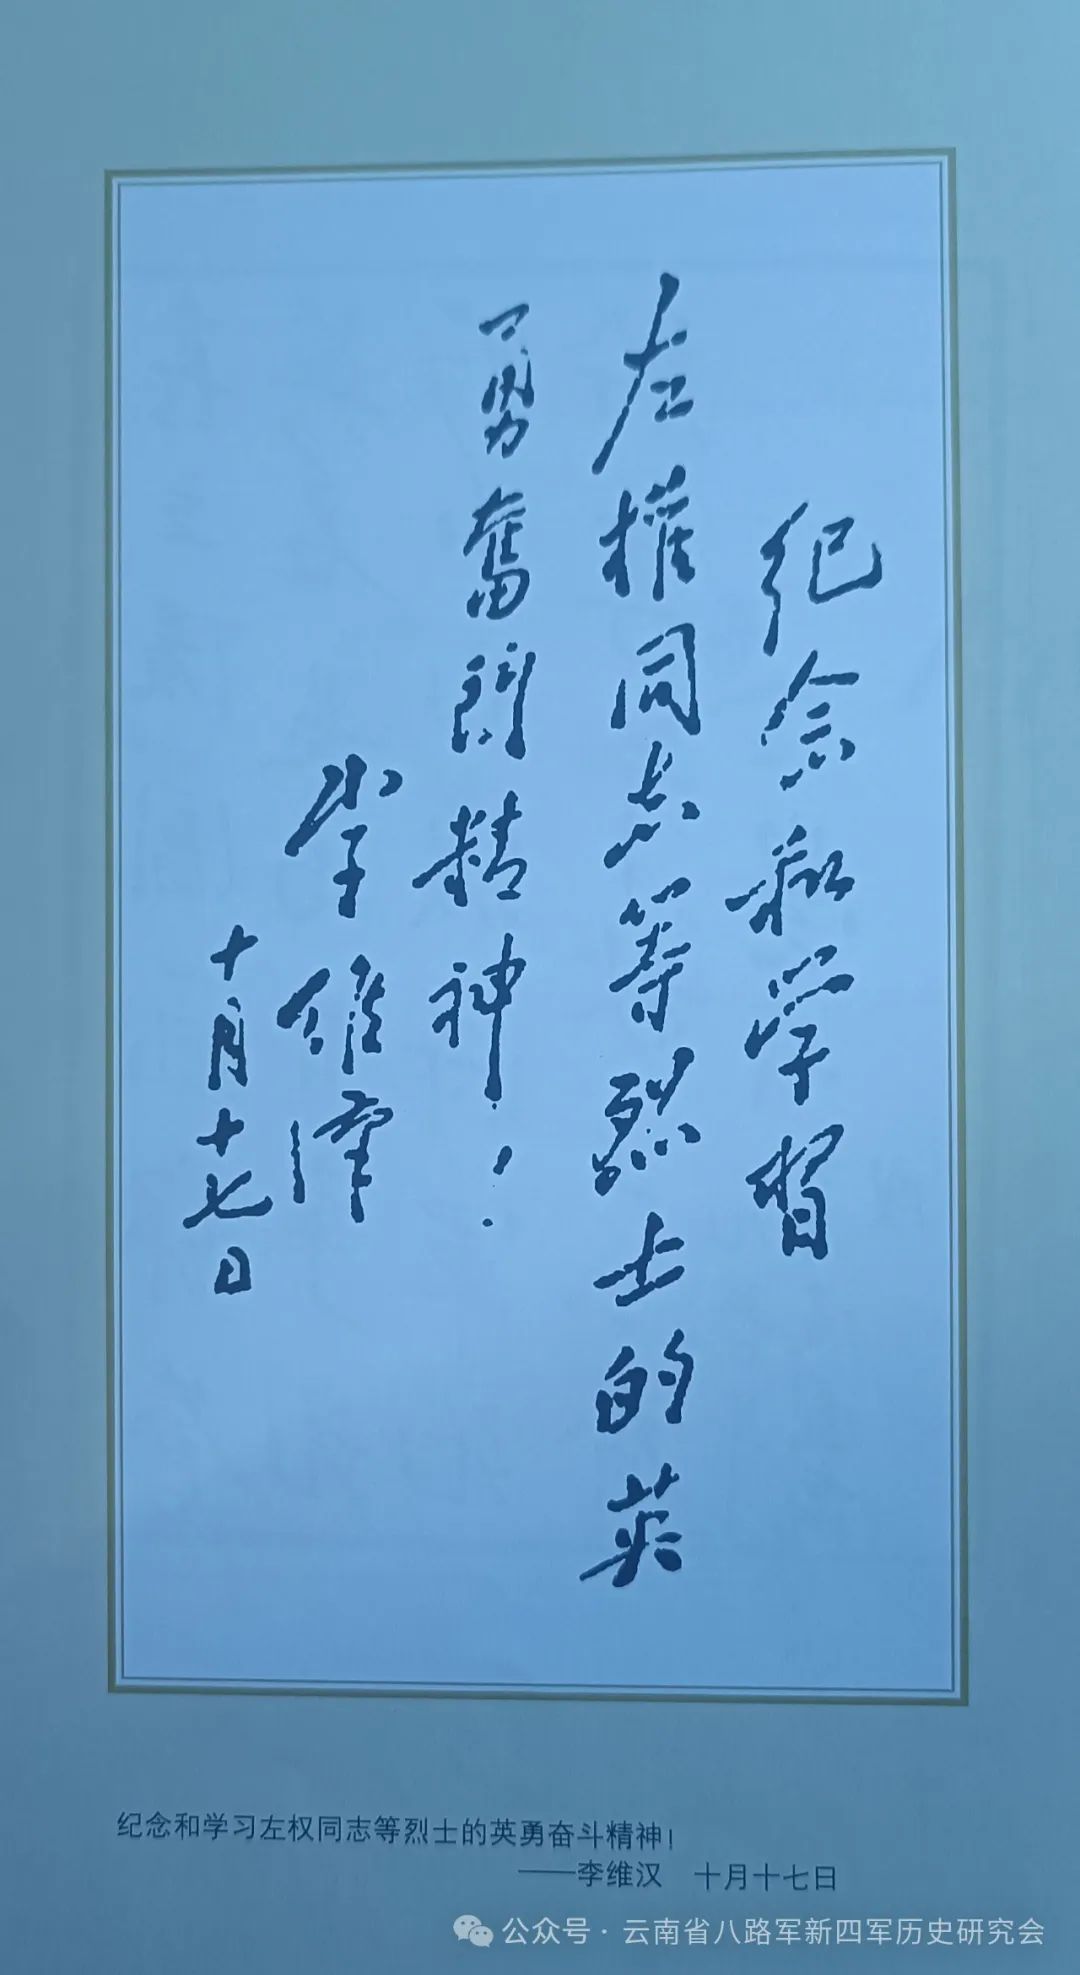 纪念和学习
左權同志等烈士的英
勇奮鬥精神！
李维漢
十月十七日
纪念和学习左权同志等烈士的英勇奋斗精神！
——李维汉 十月十七日
公众号·云南省八路军新四军历史研究会